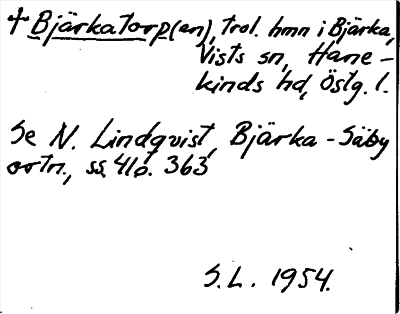 + Bjärkatorp(en), trol. hmn i Bjärka,
Vists sn, Hane-
kinds hd, Östg. l.
Se N. Lindqvist, Bjärka-Säby
ortn., ss. 41 o. 363
S.L. 1954.